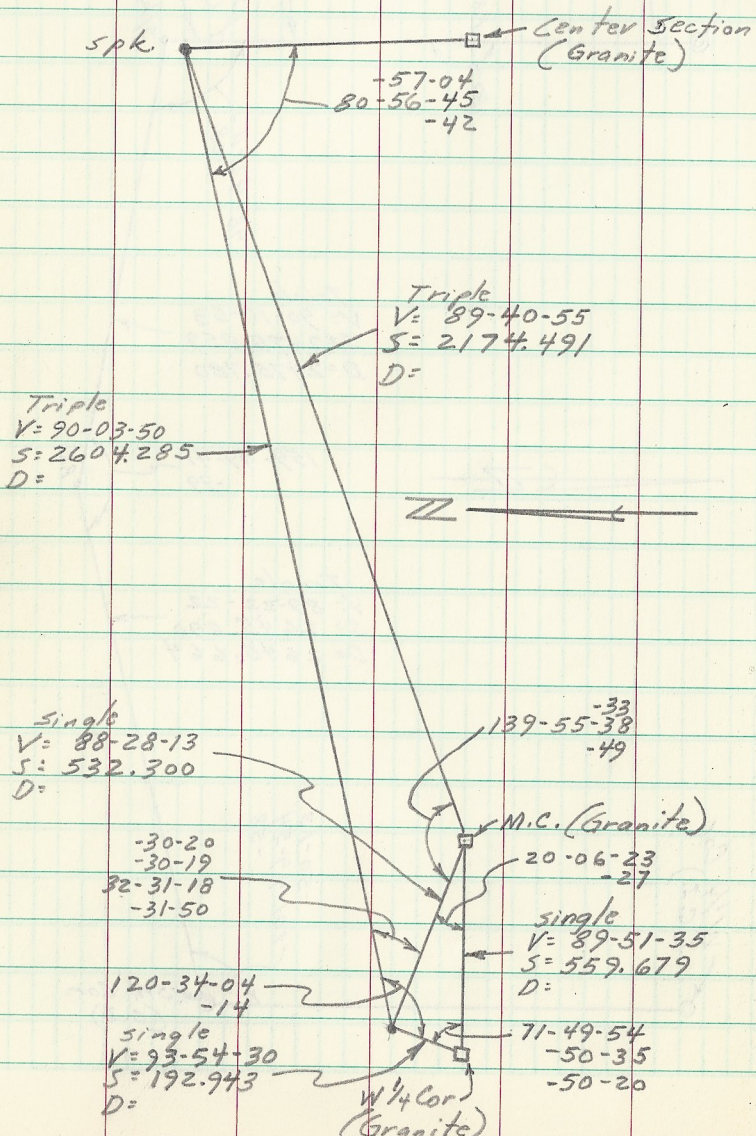 spk.
Center Section
(Granite)
-57-04
80-56-45
-42
Triple
V= 89-40-55
S= 2174.491
D=
Triple
V= 90-03-50
S= 2604.285
D=
N
single
V= 88-28-13
S= 532.300
D=
-33
139-55-38
-49
M.C. (Granite)
20-06-23
-27
-30-20
-30-19
32-31-18
-31-50
single
V= 89-51-35
S= 559.679
D=
120-34-04
-14
single
V= 93-54-30
S= 192.943
D=
71-49-54
-50-35
-50-20
W 1/4 Cor
(Granite)